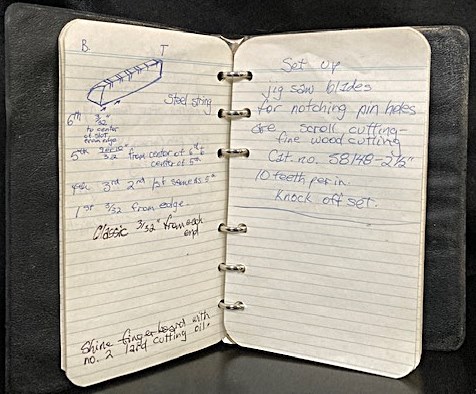 B T
Steel string
6th 3/32
to center
of slot
from edge
5th 32 from center of 6th to
center of 5th
4th 3rd 2nd 1st same as 5th
1st 3/32 from edge.
Classic 3/32" from each
end
Shine fingerboard with
no. 2 lard cutting oil.
Set up
jig saw blades
for notching pin holes
are scroll cutting-
fine wood cutting
Cat. no. 58148-2½"
10 teeth per in.
Knock off set.